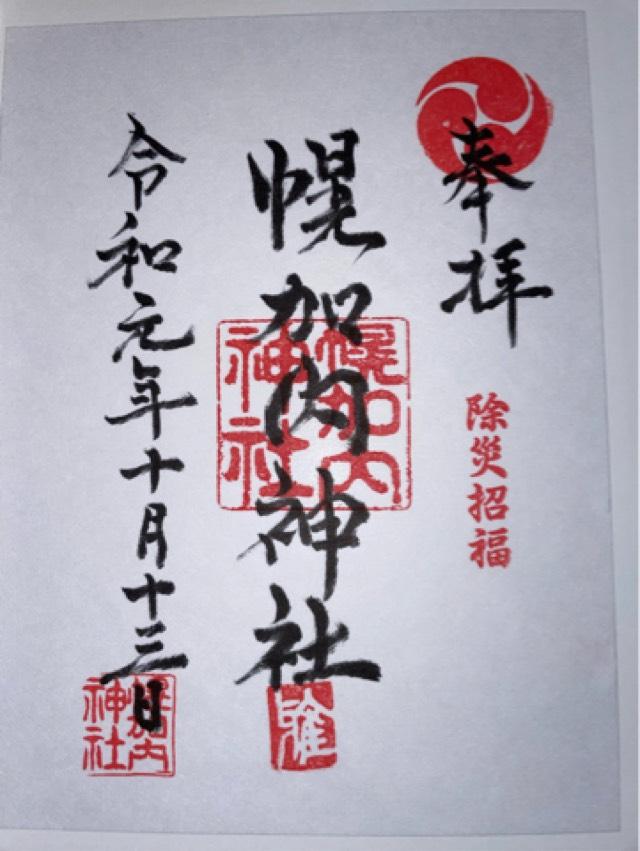 奉拝
除災招福
幌加内神社
幌加内神社
令和元年十月十三日
幌加内神社